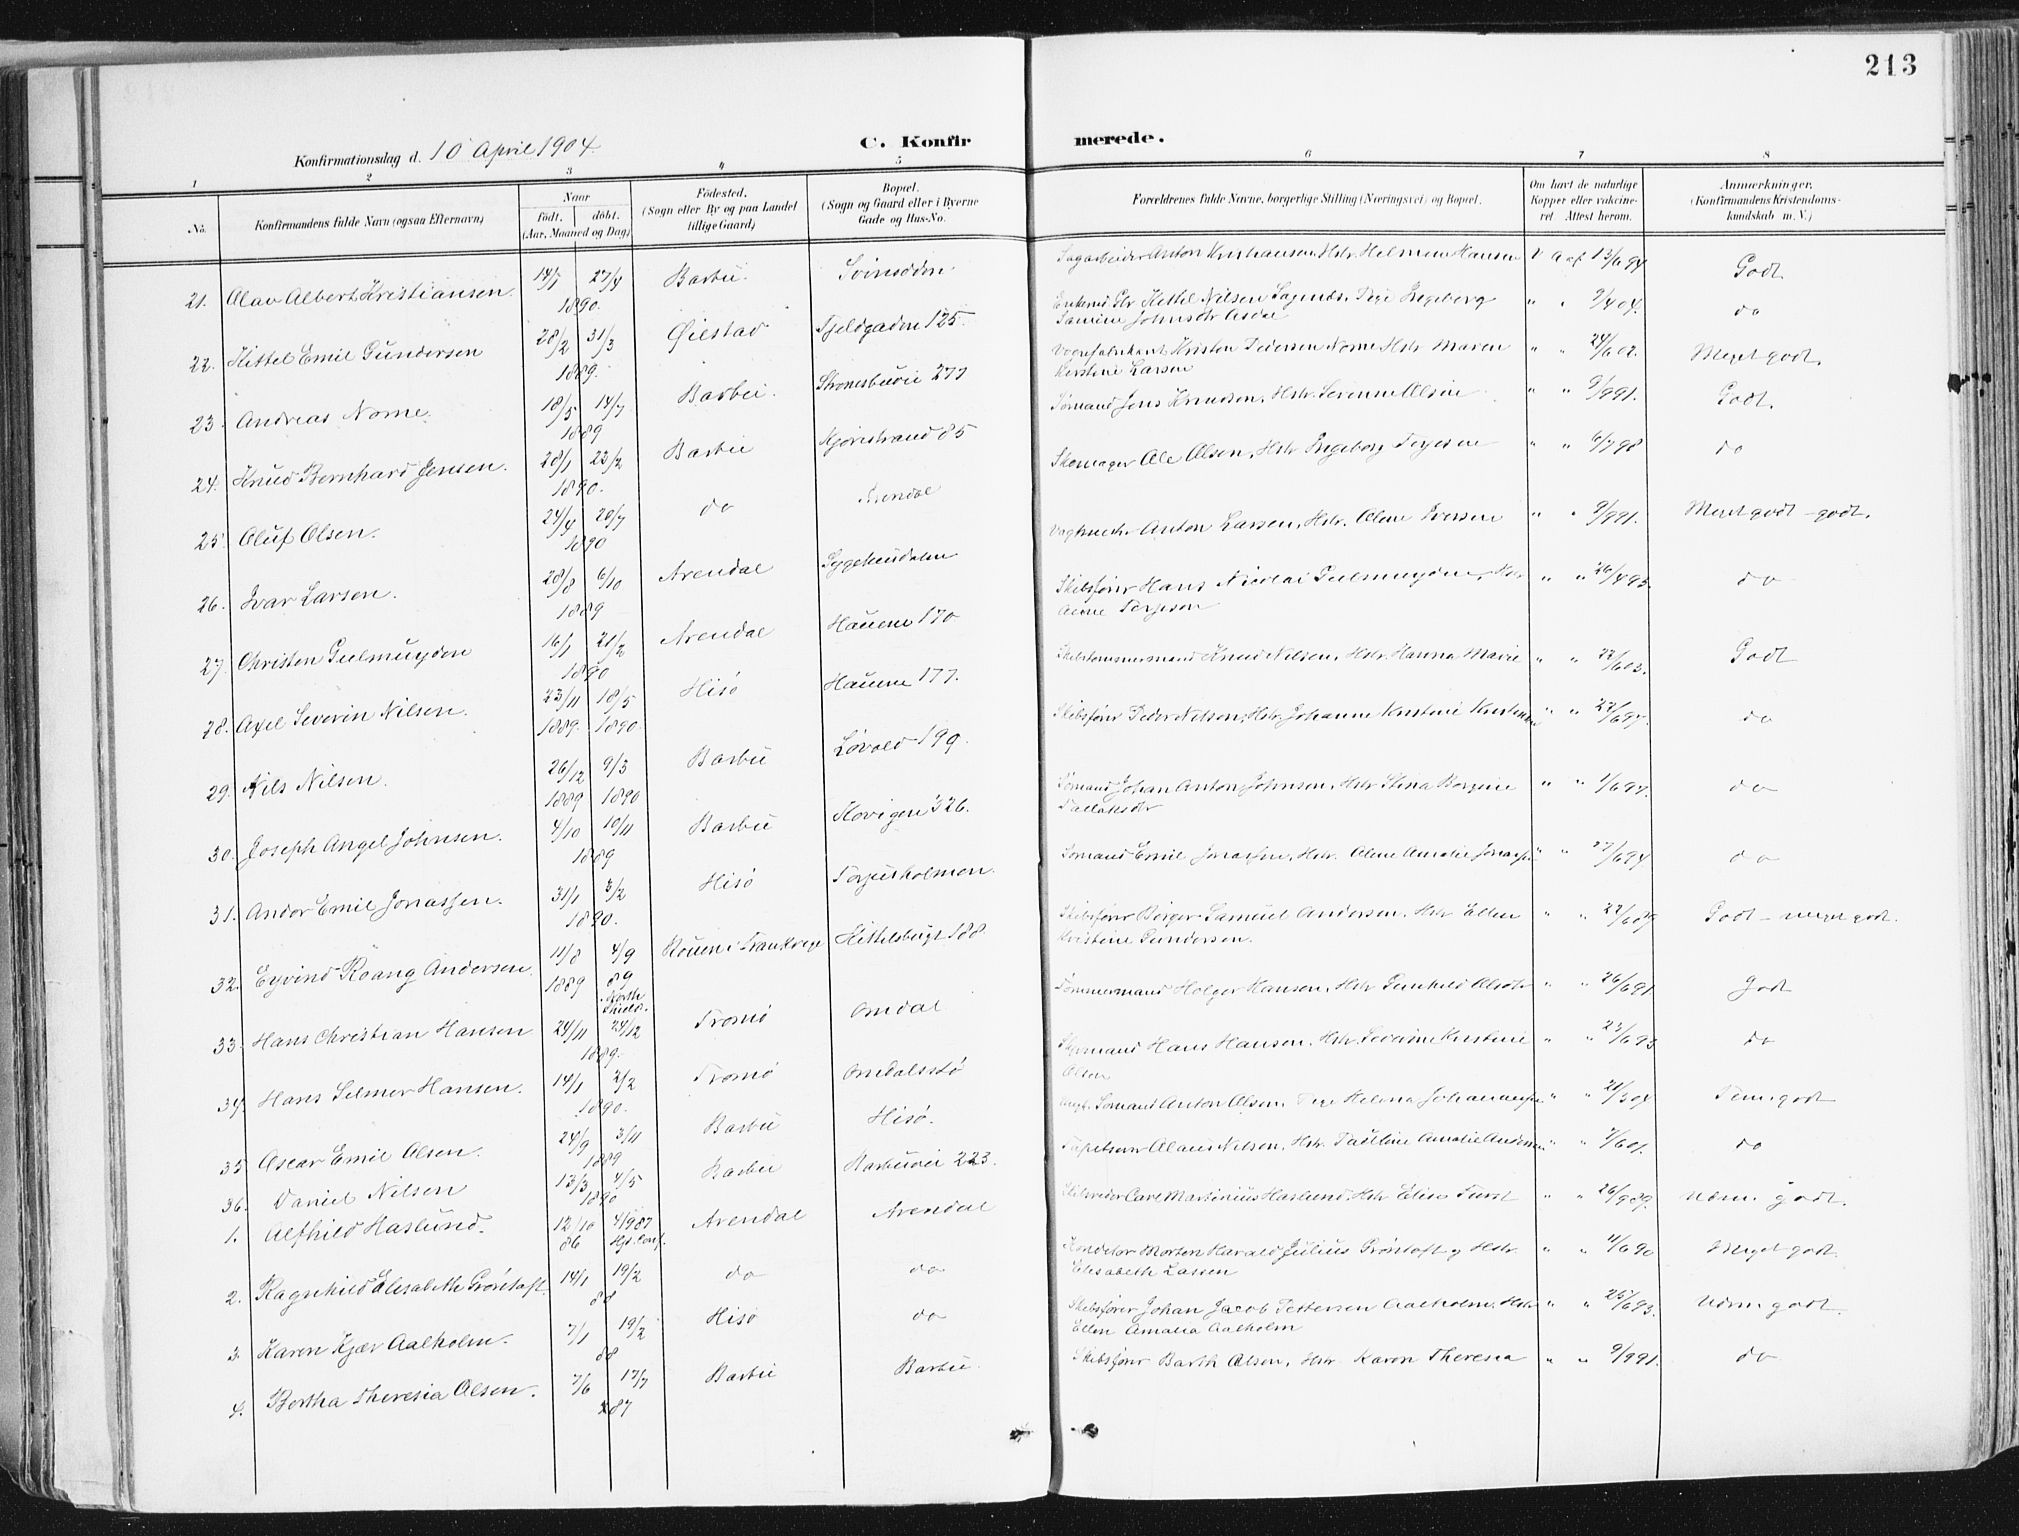 213
Konfirmationsdag d. 10 April 1904.
C. Konfirmerede.
1 2 3 4 5 6 7 8
No. Konfirmandens fulde Navn (ogsaa Efternavn) Naar født. døbt. (Aar, Maaned og Dag) Fødested. (Sogn eller By og paa Landet tillige Gaard) Bopæl. (Sogn og Gaard eller i Byerne Gade og Hus-No. Forældrenes fulde Navne, borgerlige Stilling (Næringsvei) og Bopæl. Om havt de naturlige Kopper eller vaccineret. Attest herom. Anmærkninger. (Konfirmandens Kristendomskundskab m. V.)
21. Olav Albert Kristiansen. 14/1 27/4 1890. Barbu. Sagarbeider Anton Kristiansen, Hstr. Helmine Hansen V Atf 13/6 94 Godt
22. Kittel Emil Gundersen 28/2 31/3 1889. Øiestad Fjeldgaden 125. " " 9/4 04. do
23. Andreas Nome. 18/5 14/7 1889 Barbu. 277 Vognfabrikant Kristen Pedersen Nome Hstr Maren Kirstine Larsen " " 24/6 02. Meget godt.
24. Knud Bernhard Jensen. 28/1 23/2 1890. Barbu 85 Sømand Jens Knudsen, Hstr. " " 9/9 91. Godt.
25. Oluf Olsen. 24/4 20/7 1890 do Arendal Skomager Ole Olsen, Hstr Ingeborg Terjesen " " 6/7 98 do
26. Ivar Larsen. 28/8 6/10 1889 Arendal Anton Larsen, Hstr. Iversen " " 9/9 91. Meget godt - godt.
27. Christen Gulmuyden 16/1 21/2 1890 Arendal Hauene 170 Skibsfører Hans Nicolai Gulmuyden, Hstr Anne Terjesen " " 26/4 95. do
28. Axel Severin Nilsen. 23/11 1889. 18/5 1890. Hisø Hauene 177. Skibstømmermand Knud Nilsen, Hstr. Hanna Marie " " 22/6 03. Godt
29. Nils Nilsen. 26/12 1889 9/3 1890 Barbu Løvold 199. Skibsfører Peder Nilsen, Hstr. Johanne Kristine " " 27/6 97. do
30. Joseph Angel Johnsen. 4/10 10/11 1889 Barbu Skovigen 326. Sømand Johan Anton Johnsen, Hstr Stina Bergine Tallaksdtr " " 1/6 97. do
31. Andor Emil Jonassen. 31/1 3/2 1890. Hisø Torjusholmen. Sømand Emil Jonassen, Hstr. Olene Amalie " " 27/6 94 do
32. Eyvind Roang Andersen. 11/8 1889 4/9 89 North Shields. Rouen i Frankrige Kittelsbugt 188. Skibsfører Børger Samuel Andersen. Hstr Ellen Kristine Gundersen. " " 27/6 89 Godt - meget godt.
33. Hans Christian Hansen 24/11 24/12 1889. Tromø Omdal Tømmermand Holger Hansen, Hstr Gunhild Olsdtr " " 26/6 91. Godt
34. Hans Selmer Hansen. 14/1 2/2 1890. Tromø Omdalsstø Hans Hansen. Hstr. Kirstine Olsen " " 23/6 93 do
35. Oscar Emil Olsen. 24/9 3/11 1889 Barbu Hisø. Ungk. Sømand Anton Olsen. Pige Helena " " 21/3 04 Tem. godt
36. Daniel Nilsen 13/3 4/5 1890 Barbu Barbuvei 223. Olaus Nilsen, Hstr. Pauline Amalie Andersen " " 7/6 01. do
1. Alfhild Haslund. 12/10 86 4/9 87 Hjd. Conf. Arendal Arendal Carl Martinius Haslund, Hstr Elise Furst " " 26/9 89. Udm. godt.
2. Ragnhild Elisabeth Grøntoft. 14/1 19/2 88 do do Konditor Morten Harald Julius Grøntoft og Hstr. Elisabeth Larsen " " 11/6 90 Meget godt.
3. Karen Kjær Aalholm. 7/1 19/2 88 Hisø do Skibsfører Johan Jacob Pettersen Aalholm. Hstr Ellen Amalia Aalholm " " 25/6 93. Udm. godt.
4. Bertha Theresia Olsen. 7/6 17/7 87 Barbu Barbu. Skibsfører Barth Olsen, Hstr. Karen Theresia " " 9/9 91. do